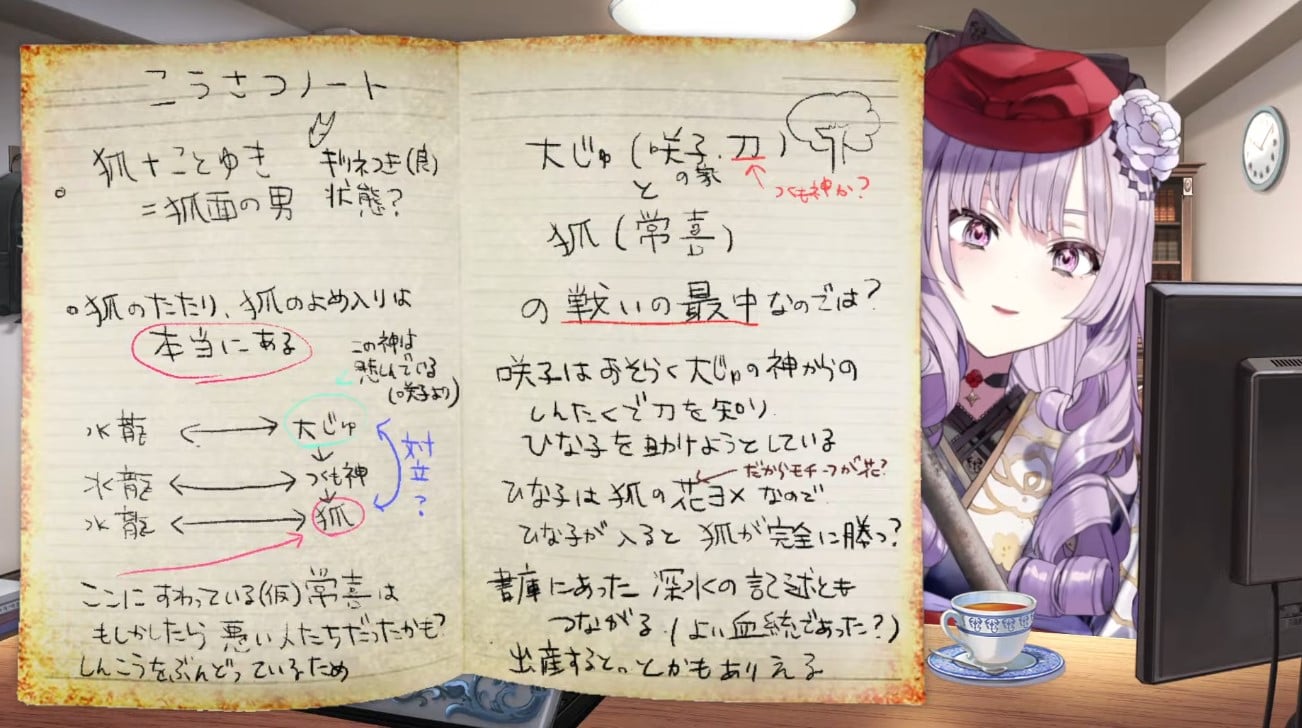 こうさつノート
狐+ことゆき
=狐面の男
キツネつき(良)
状態?
狐のたたり、狐のよめ入りは
本当にある
この神は
悲しんでいる
(咲子より)
水龍 ←→ 大じゅ
水龍 ←→ つくも神
水龍 ←→ 狐
対立?
ここにすわっている(仮)常喜は
もしかしたら悪い人たちだったかも?
しんこうをぶんどっているため
大じゅ(咲子・刀)
の家
つくも神か?
と
狐(常喜)
の戦いの最中なのでは?
咲子はおそらく大じゅの神からの
しんたくで刀を知り
ひな子を助けようとしている
だからモチーフが花?
ひな子は狐の花ヨメなので
ひな子が入ると狐が完全に勝つ?
書庫にあった深水の記述とも
つながる(よい血統であった?)
出産すると。とかもありえる